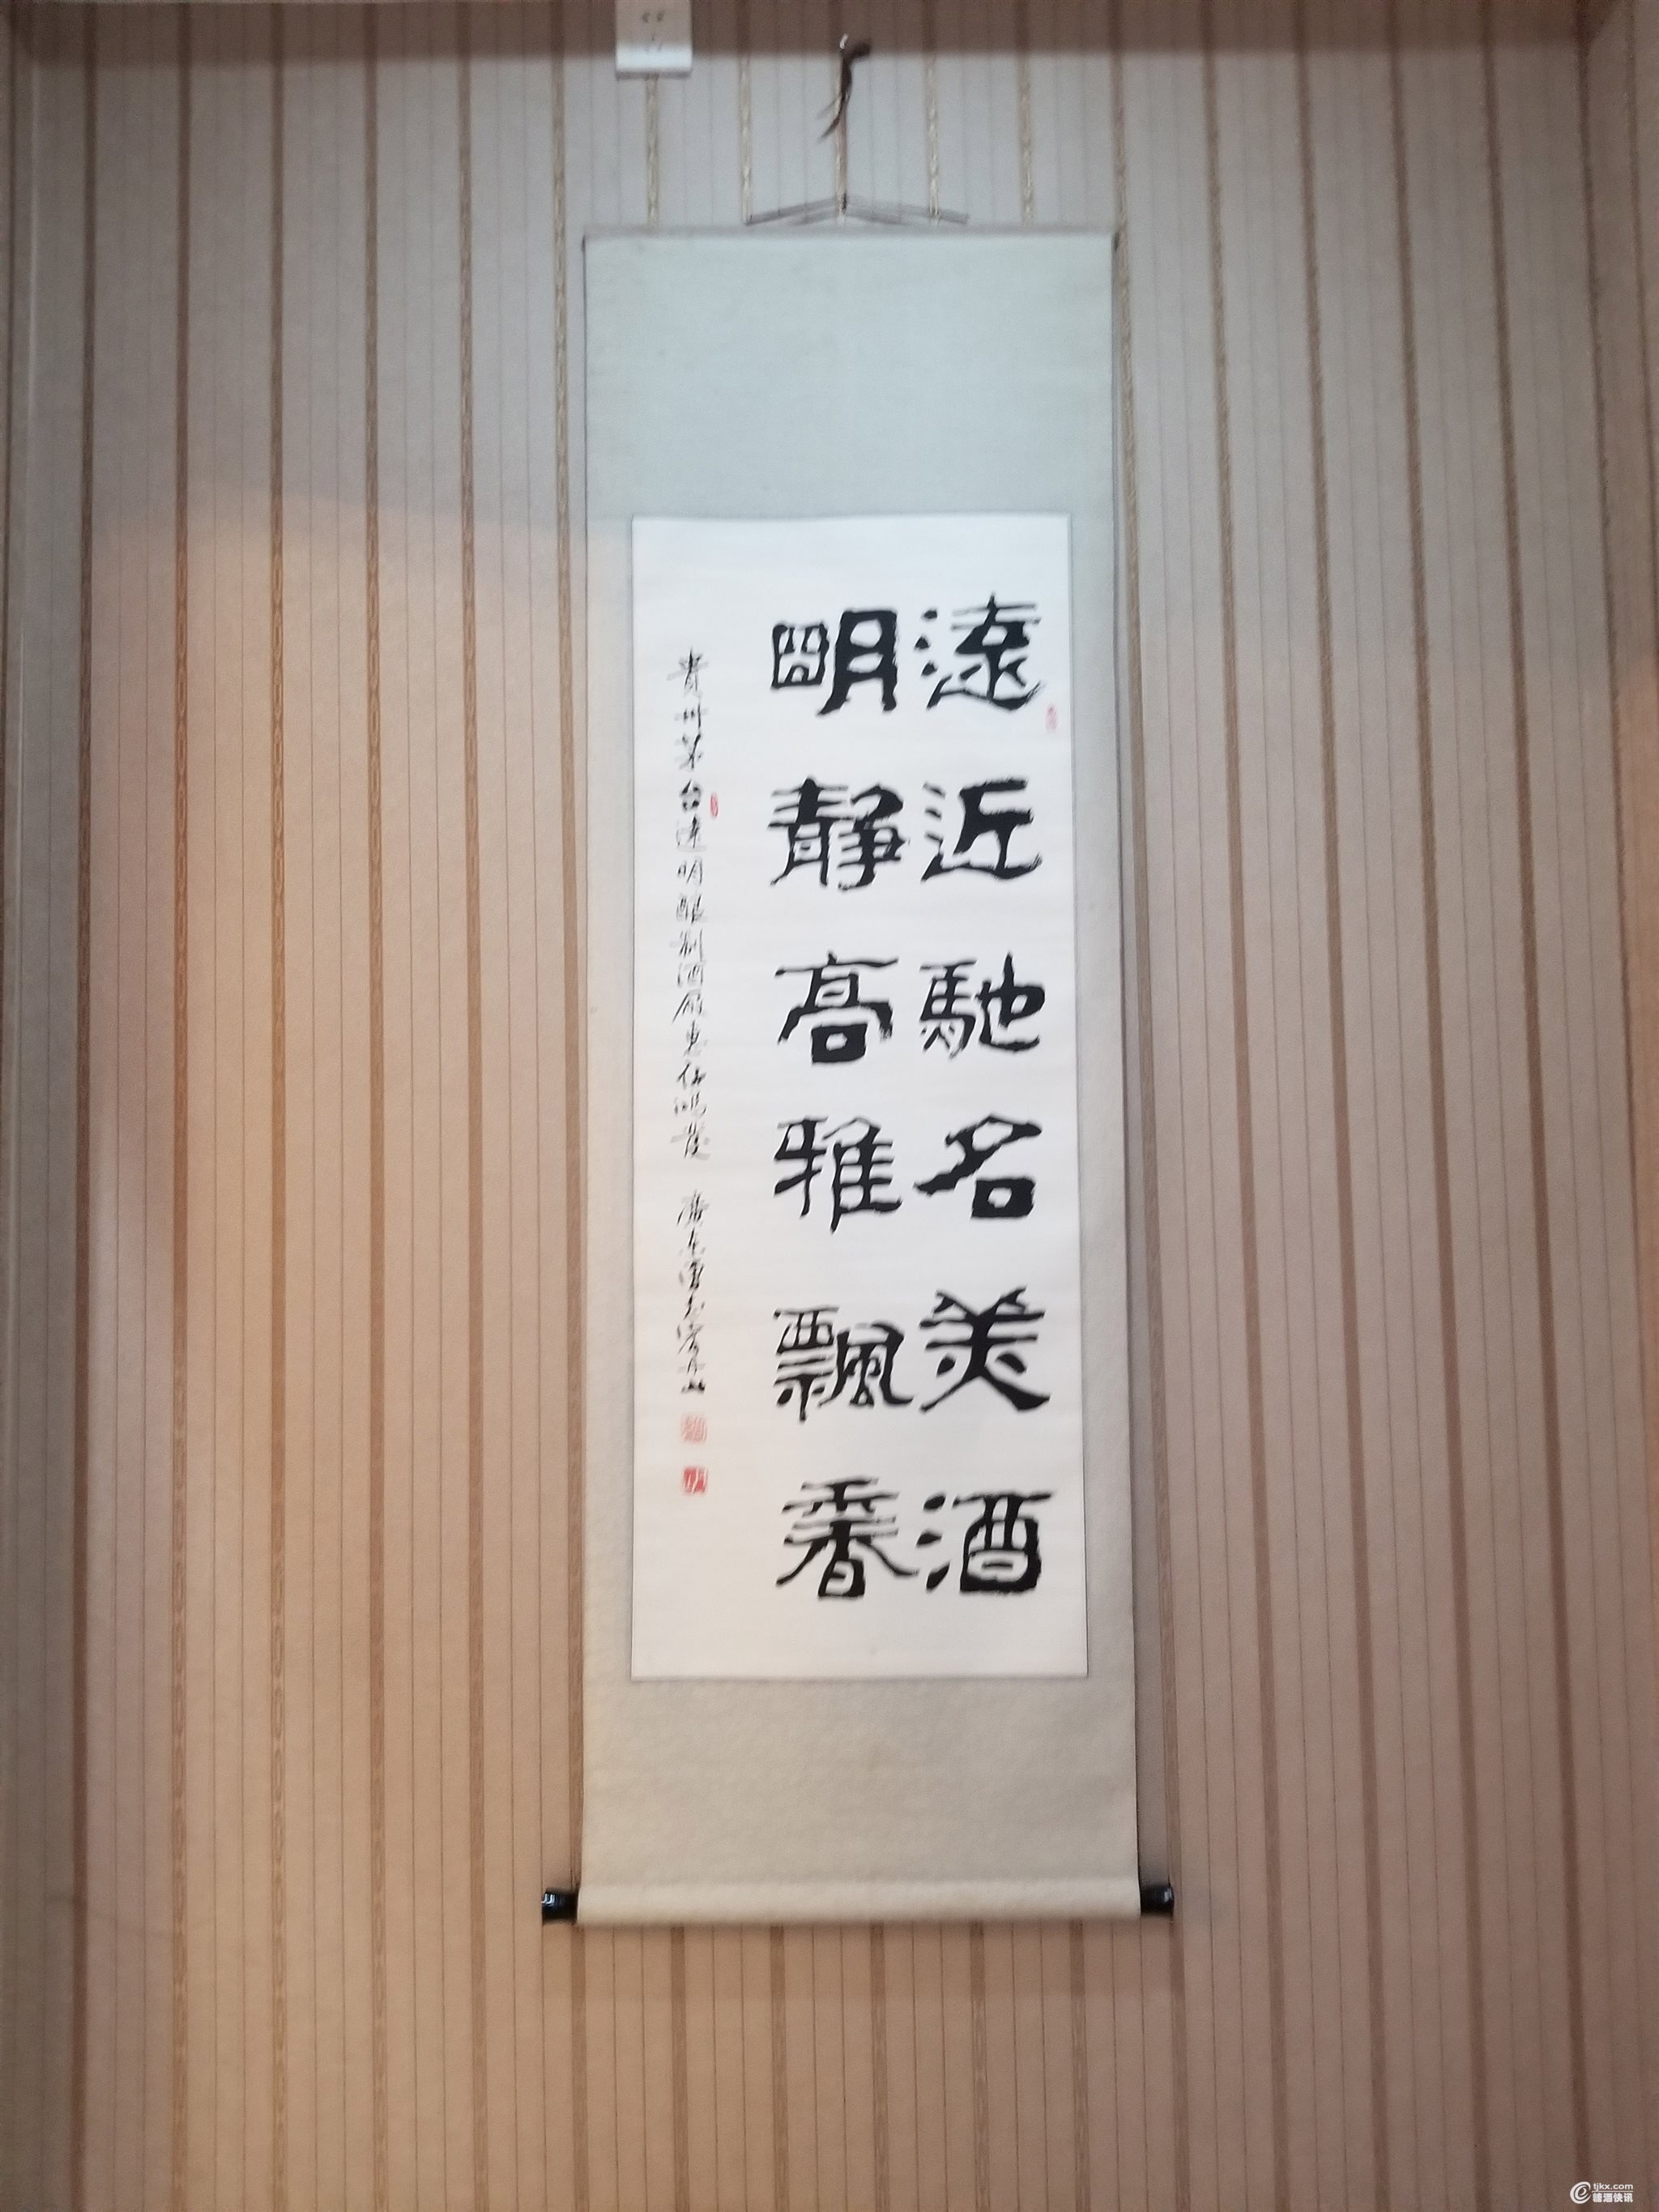 遠近馳名美酒
明靜高雅飄香
貴州茅台遠明釀制酒廠惠存鴻發
tjkx.com
糖酒快讯